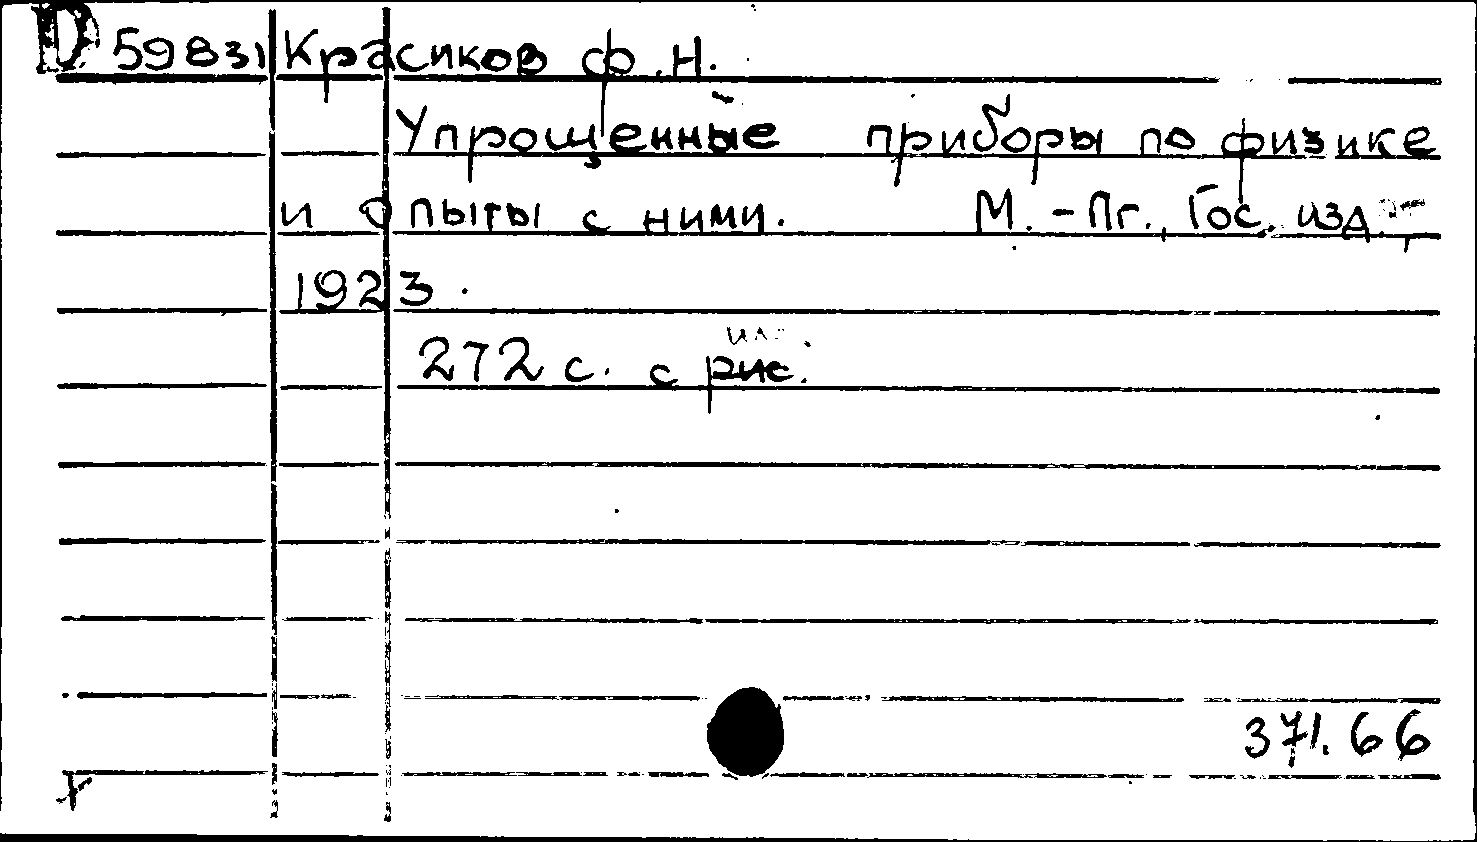 D 59831 Красиков Ф.Н.
Упрощенные приборы по физике
и опыты с ними. М.-Пг., Гос. изд-
1923.
ил.
272 с. с рис.
371.66